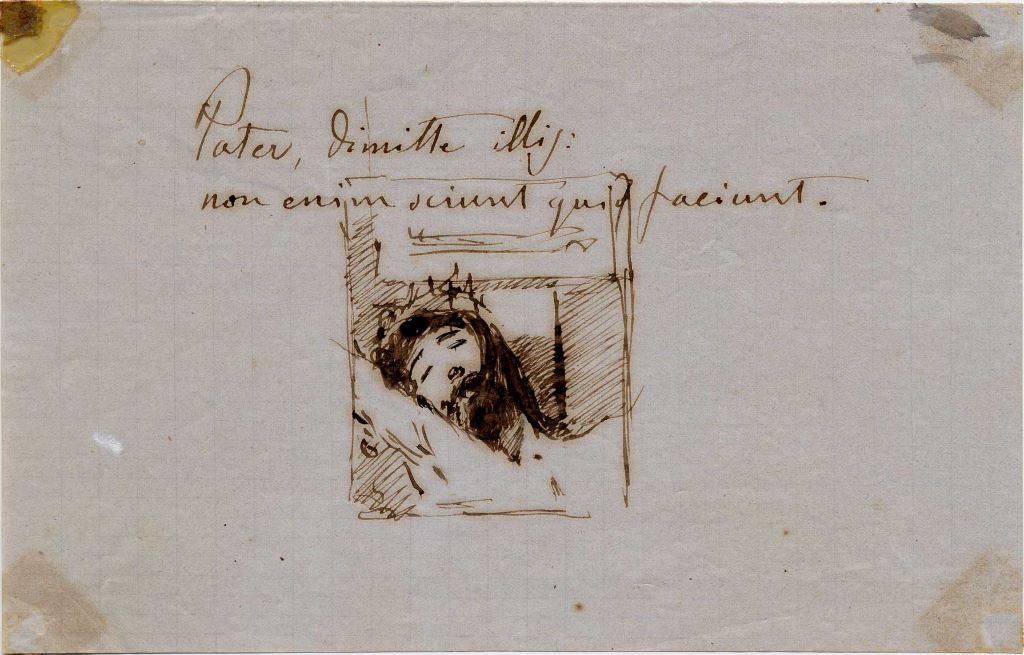 Pater, dimitte illis:
non enim sciunt quid faciunt.